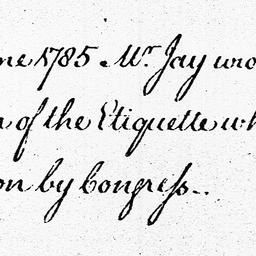 ne 1785. Mr. Jay wro
of the Etiquette wh
on by Congress..